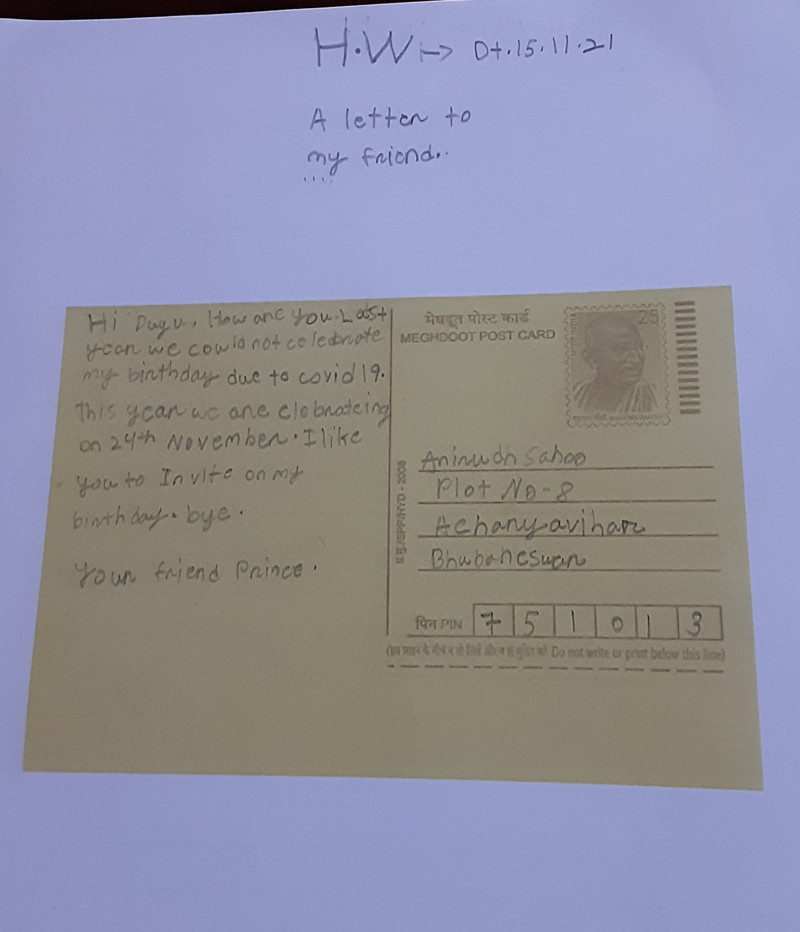 H.W → Dt.15.11.21
A letter to
my friend..
Hi Dugu, How are you. Last
year we could not celebrate
my birthday due to covid19.
This year we are clebrateing
on 24th November. I like
you to Invite on my
birthday. bye.
Your friend Prince.
मेघदूत पोस्ट कार्ड
MEGHDOOT POST CARD
25
Anirudh Sahoo
Plot No-8
Acharyavihar
Bhubaneswar
पिन PIN 751013
(इस लाइन के नीचे न तो लिखें और न ही मुद्रित करें Do not write or print below this line)